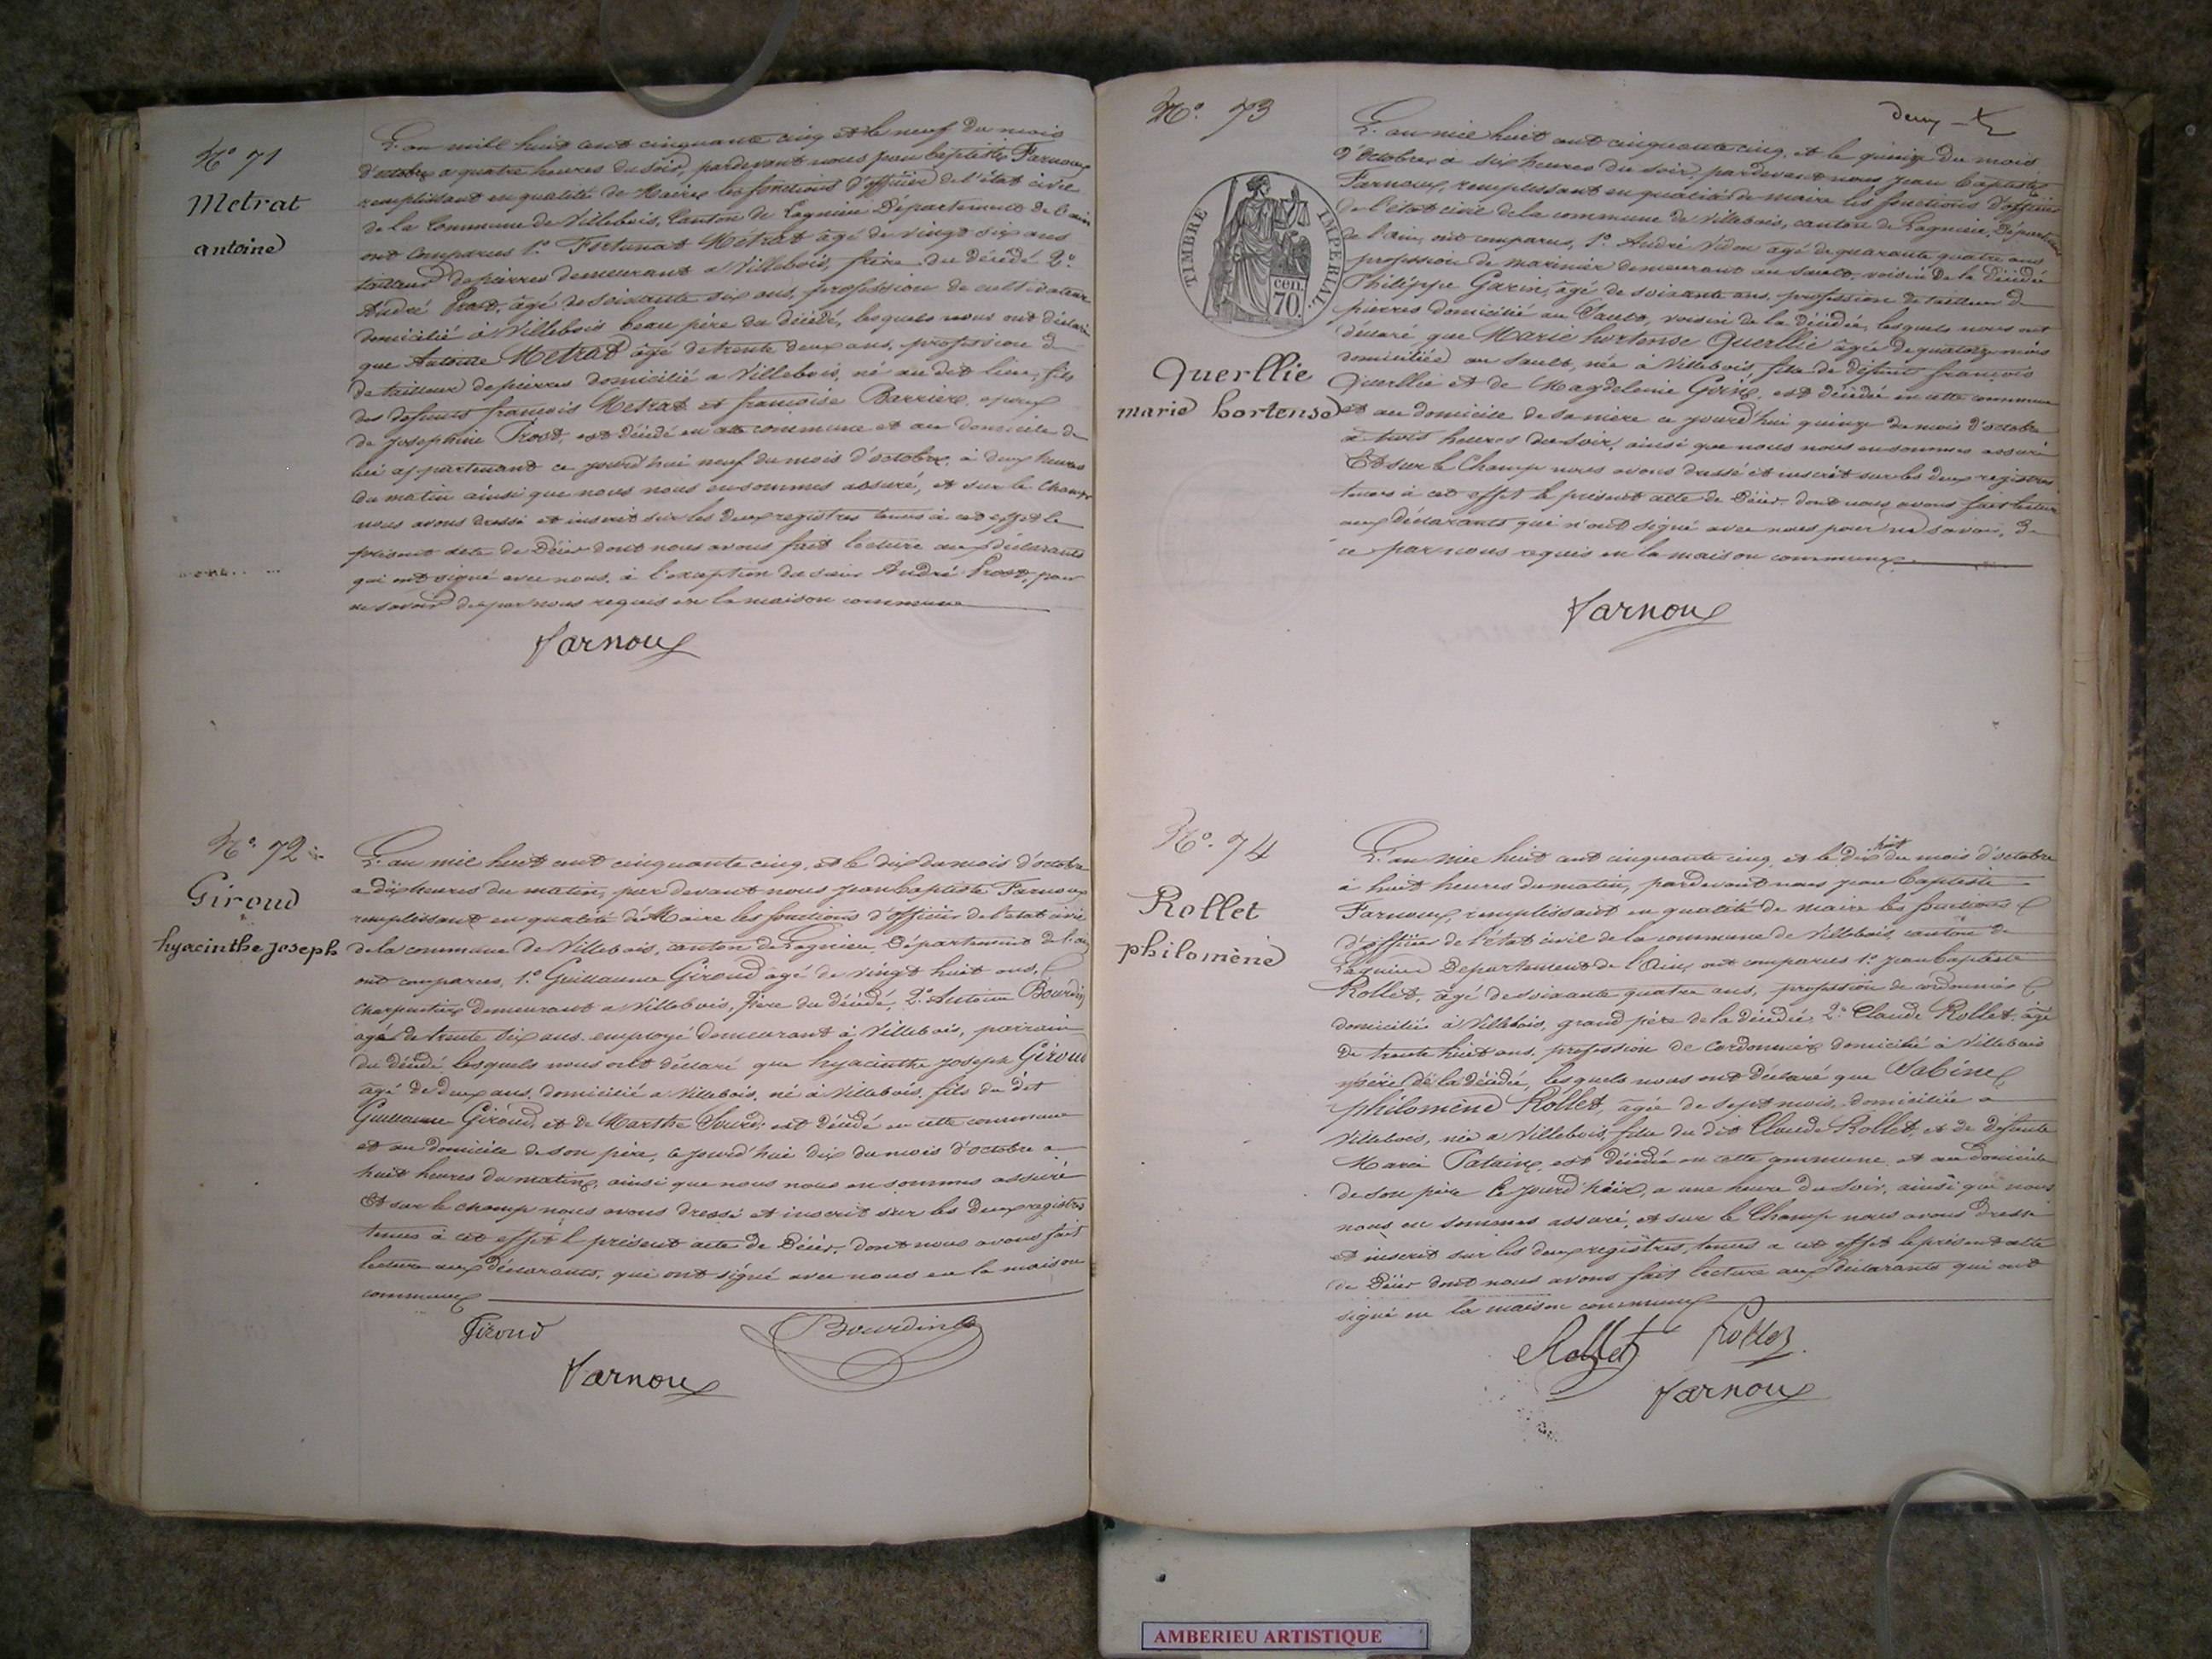 N° 71
Metrat
antoine
L'an mille huit cent cinquante cinq et le neuf du mois
d'octobre a quatre heures du soir, pardevant nous jean baptiste Farnoux
remplissant en qualité de Maire les fonctions d'officier de l'état civil
de la Commune de Villebois, Canton de Lagnieu Département de l'ain
ont comparus 1° Fortunat Métrat âgé de vingt six ans
tailleur de pierres demeurant a Villebois, frère du décédé 2°
André Prost, âgé de soixante six ans, profession de cultivateur
domicilié à Villebois beau père du décédé, lesquels nous ont déclaré
que Antoine Metrat âgé de trente deux ans, profession de
de tailleur de pierres domicilié a Villebois, né au dit lieu, fils
des defunts françois Metrat et françoise Barrière, epoux
de Josephine Prost, est décédé en cette commune et au domicile de
lui appartenant ce jourd'hui neuf du mois d'octobre, à deux heures
du matin ainsi que nous nous en sommes assuré, et sur le champ
nous avons dressé et inscrit sur les deux registres tenus à cet effet le
présent acte de Décès dont nous avons fait lecture aux déclarants
qui ont signé avec nous, à l'exception du sieur André Prost, pour
ne savoir de par nous requis en la maison commune
Farnoux
N° 72
Giroud
hyacinthe joseph
L'an mil huit cent cinquante cinq, et le dix du mois d'octobre
a dix heures du matin, par devant nous jean baptiste Farnoux
remplissant en qualité de Maire les fonctions d'officier de l'état civil
de la commune de Villebois, canton de Lagnieu, Département de l'ain
ont comparus, 1° Guillaume Giroud âgé de vingt huit ans,
charpentier demeurant a Villebois, père du décédé, 2° Antoine Bourdin
âgé de trente dix ans employé demeurant à Villebois, parrain
du décédé lesquels nous ont déclaré que hyacinthe joseph Giroud
âgé de deux ans, domicilié a Villebois, né à Villebois, fils du dit
Guillaume Giroud, et de Marthe est décédé en cette commune
et au domicile de son père, ce jourd'hui dix du mois d'octobre a
huit heures du matin, ainsi que nous nous en sommes assuré
Et sur le champ nous avons dressé et inscrit sur les deux registres
tenus à cet effet le présent acte de Décès, dont nous avons fait
lecture aux déclarants, qui ont signé avec nous en la maison
commune
Giroud Bourdin
Farnoux
N° 73
TIMBRE IMPERIAL.
70. cen.
Querllie
marie hortense
L'an mil huit cent cinquante cinq, et le quinze du mois
d'Octobre à six heures du soir, pardevant nous jean baptiste
Farnoux, remplissant en qualité de maire les fonctions d'officier
de l'état civil de la commune de Villebois, canton de Lagnieu, Département
de l'ain, ont comparus, 1° André Vidon âgé de quarante quatre ans
profession de marinier demeurant au sault, voisin de la Décédée
Philippe Garin, âgé de soixante ans, profession de tailleur de
pierres domicilié au Sault, voisin de la décédée, lesquels nous ont
déclaré que Marie hortense Querllie âgée de quatorze mois
domiciliée au Sault, née à Villebois, fille de défunt françois
Querllie et de Magdeleine est décédée en cette commune
et au domicile de sa mère ce jourd'hui quinze du mois d'octobre
à trois heures du soir, ainsi que nous nous en sommes assuré
Et sur le Champ nous avons dressé et inscrit sur les deux registres
tenus à cet effet le présent acte de Décès, dont nous avons fait lecture
aux déclarants qui n'ont signé avec nous pour ne savoir, de
ce par nous requis en la maison commune
Farnoux
N° 74
Rollet
philomène
L'an mil huit cent cinquante cinq, et le dix huit du mois d'octobre
à huit heures du matin, pardevant nous jean baptiste
Farnoux, remplissant en qualité de maire les fonctions
d'officier de l'état civil de la commune de Villebois, canton de
Lagnieu Departement de l'Ain, ont comparus 1° jean baptiste
Rollet, âgé de soixante quatre ans, profession de cordonnier
domicilié à Villebois, grand père de la décédée, 2° Claude Rollet, âgé
de trente huit ans, profession de cordonnier domicilié à Villebois
père de la décédée, lesquels nous ont déclaré que Sabine
philomène Rollet, âgée de sept mois, domiciliée a
Villebois, née a Villebois, fille du dit Claude Rollet, et de défunte
Marie est décédée en cette commune et au domicile
de son père ce jourd'hui, a une heure du soir, ainsi que nous
nous en sommes assuré, et sur le Champ nous avons dressé
et inscrit sur les deux registres, tenus a cet effet le présent acte
de Décès dont nous avons fait lecture aux déclarants qui ont
signé en la maison commune
Rollet Rollet
Farnoux
AMBERIEU ARTISTIQUE